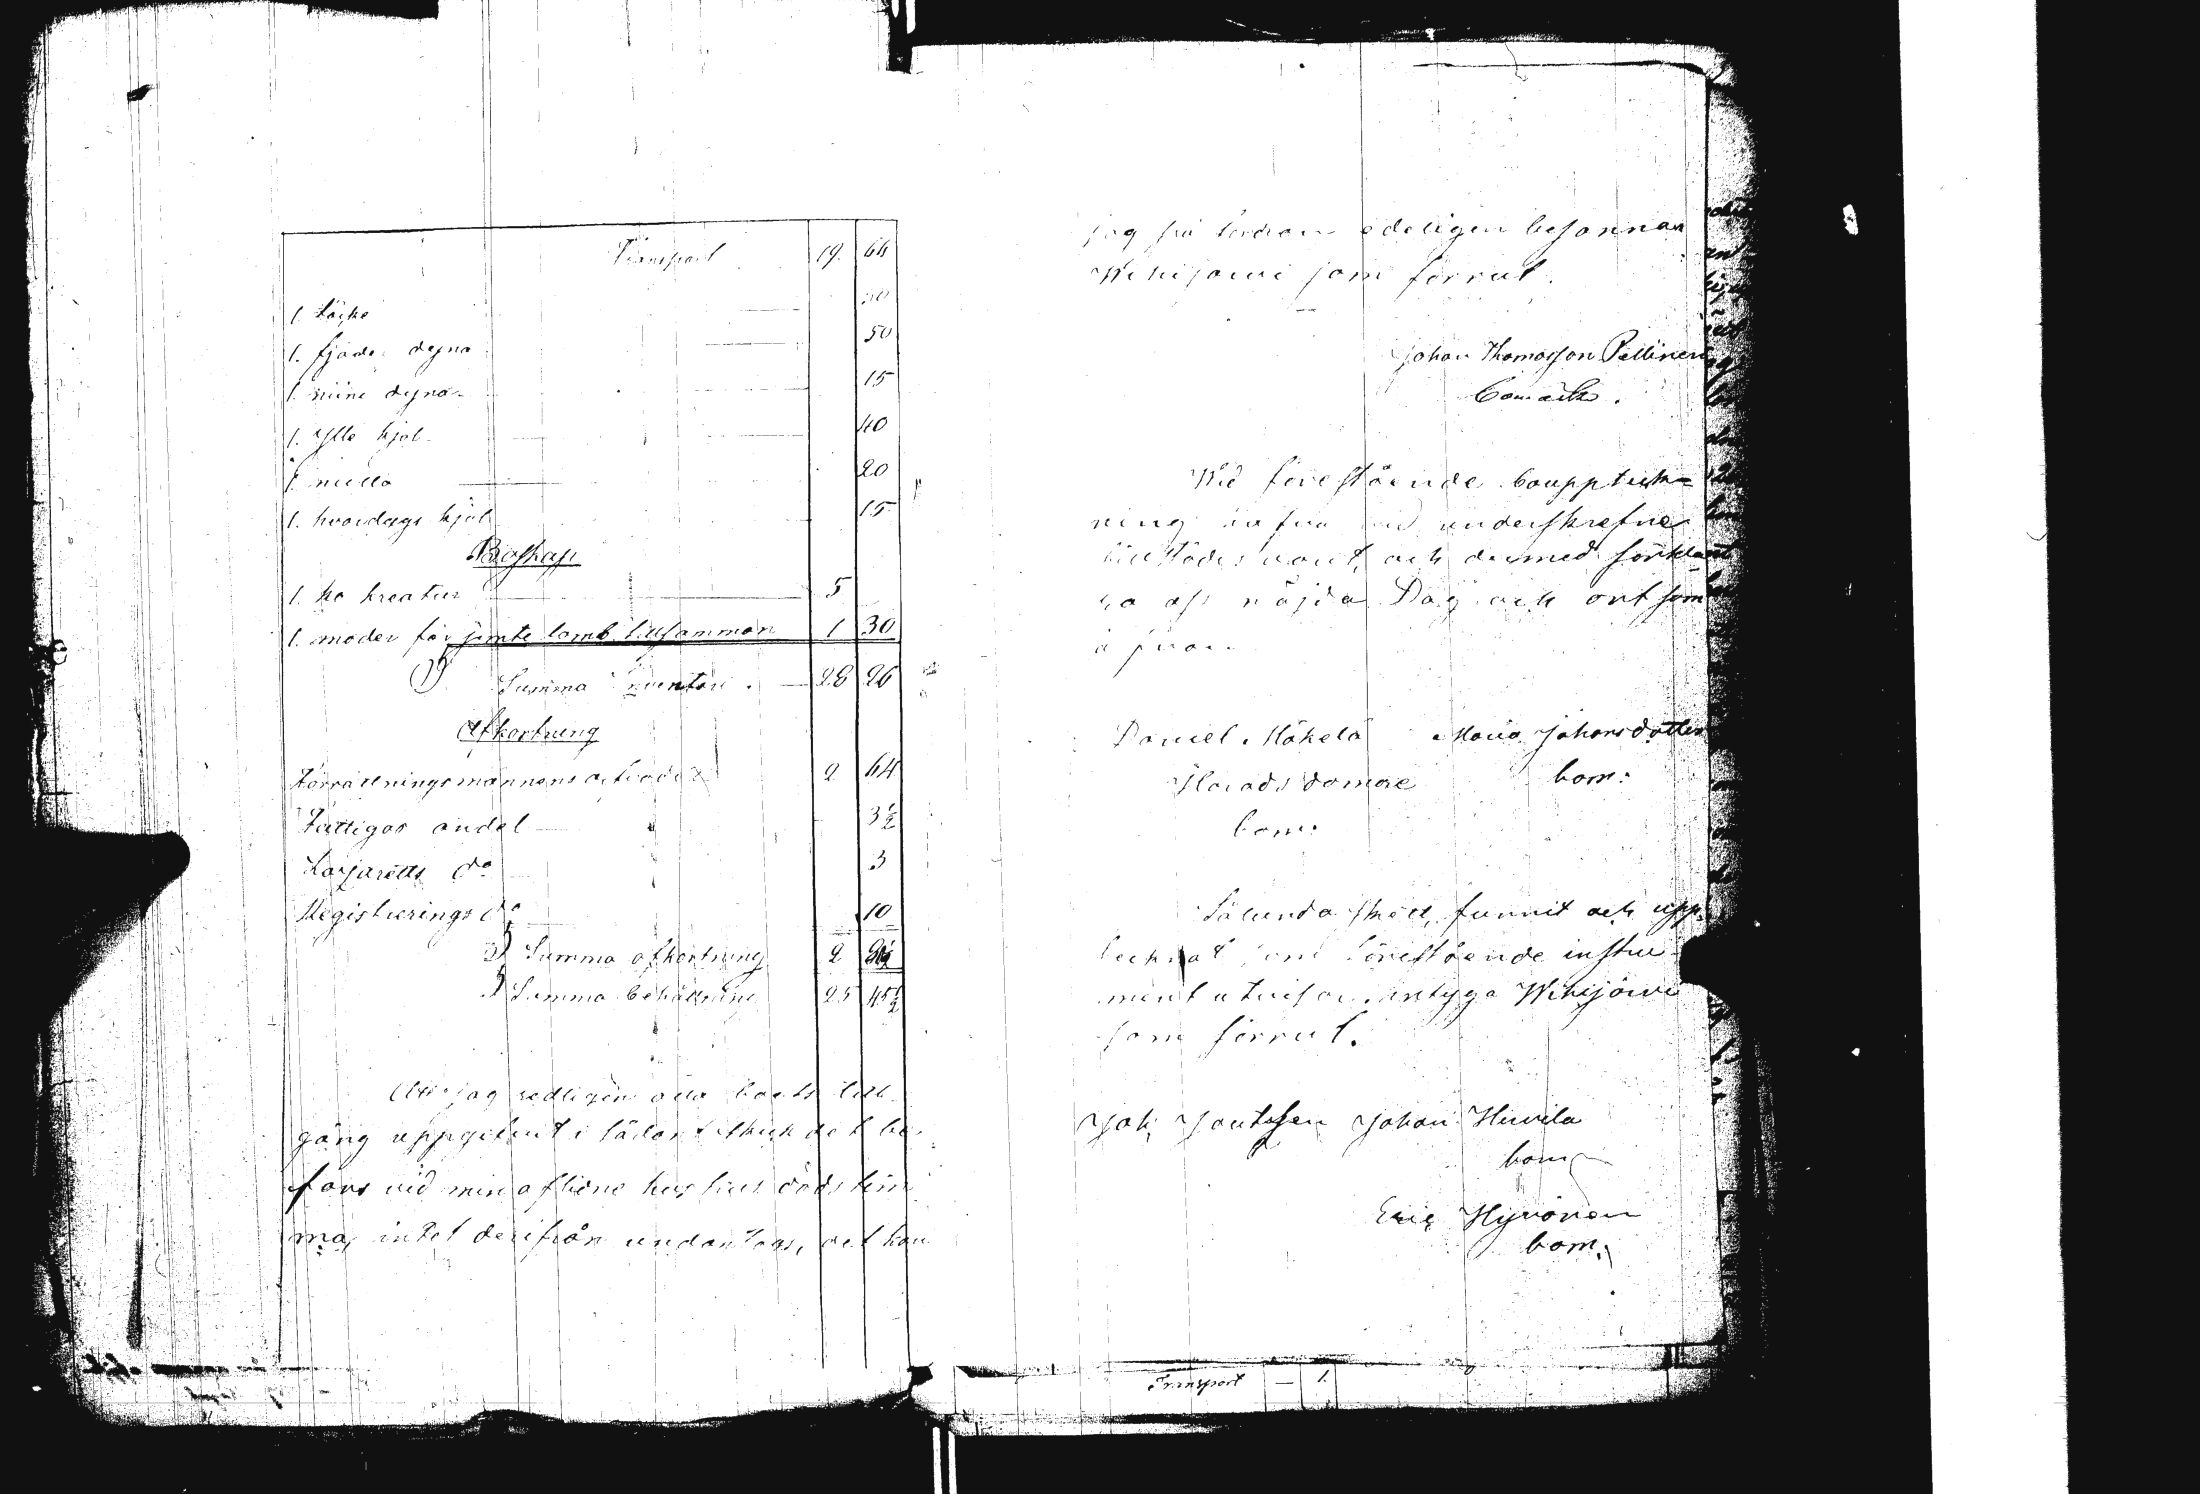 Transport 19. 64
1. täcke 30
1. fjäder dyna 50
1. niine dyna 15
1. ylle kjol 40
1. 20
1. hvardags kjol 15
Boskap
1. ko kreatur 5
1. moder får jemte lamb tillsamman 1 30
Summa Inventari 28 26
Afkortning
Förrättningsmannens arfvode 2 64
Fattigas andel 3½
Lazaretts do 3
Registrerings do 10
Summa afkortning 2
Summa behållning 25 45½
Att jag redligen alla boets till
gång uppgifvit i sådant skick det be
fans vid min aflidne hustrus döds tim
ma, intet derifrån undantags, det kan
jag edeligen besanna
Wihijärvi som förrut.
Johan Thomasson Pellinen
Bomärke.
Wid förestående bouppteck=
ning hafva vi underskrefne
tillstädes varit, och dermed förklarat
oss nöjda Dag och ort som
ofvan
Daniel Mäkelä Maria Johansdotter
Härads domare bom:
bom:
Sålunda skedt, funnit och upp
tecknat som förestående instru-
ment utvisar, intyga Wihijärvi
som förrut.
Joh, Johan Huvila
bom
Eric Hyvönen
bom.
Transport — 1.